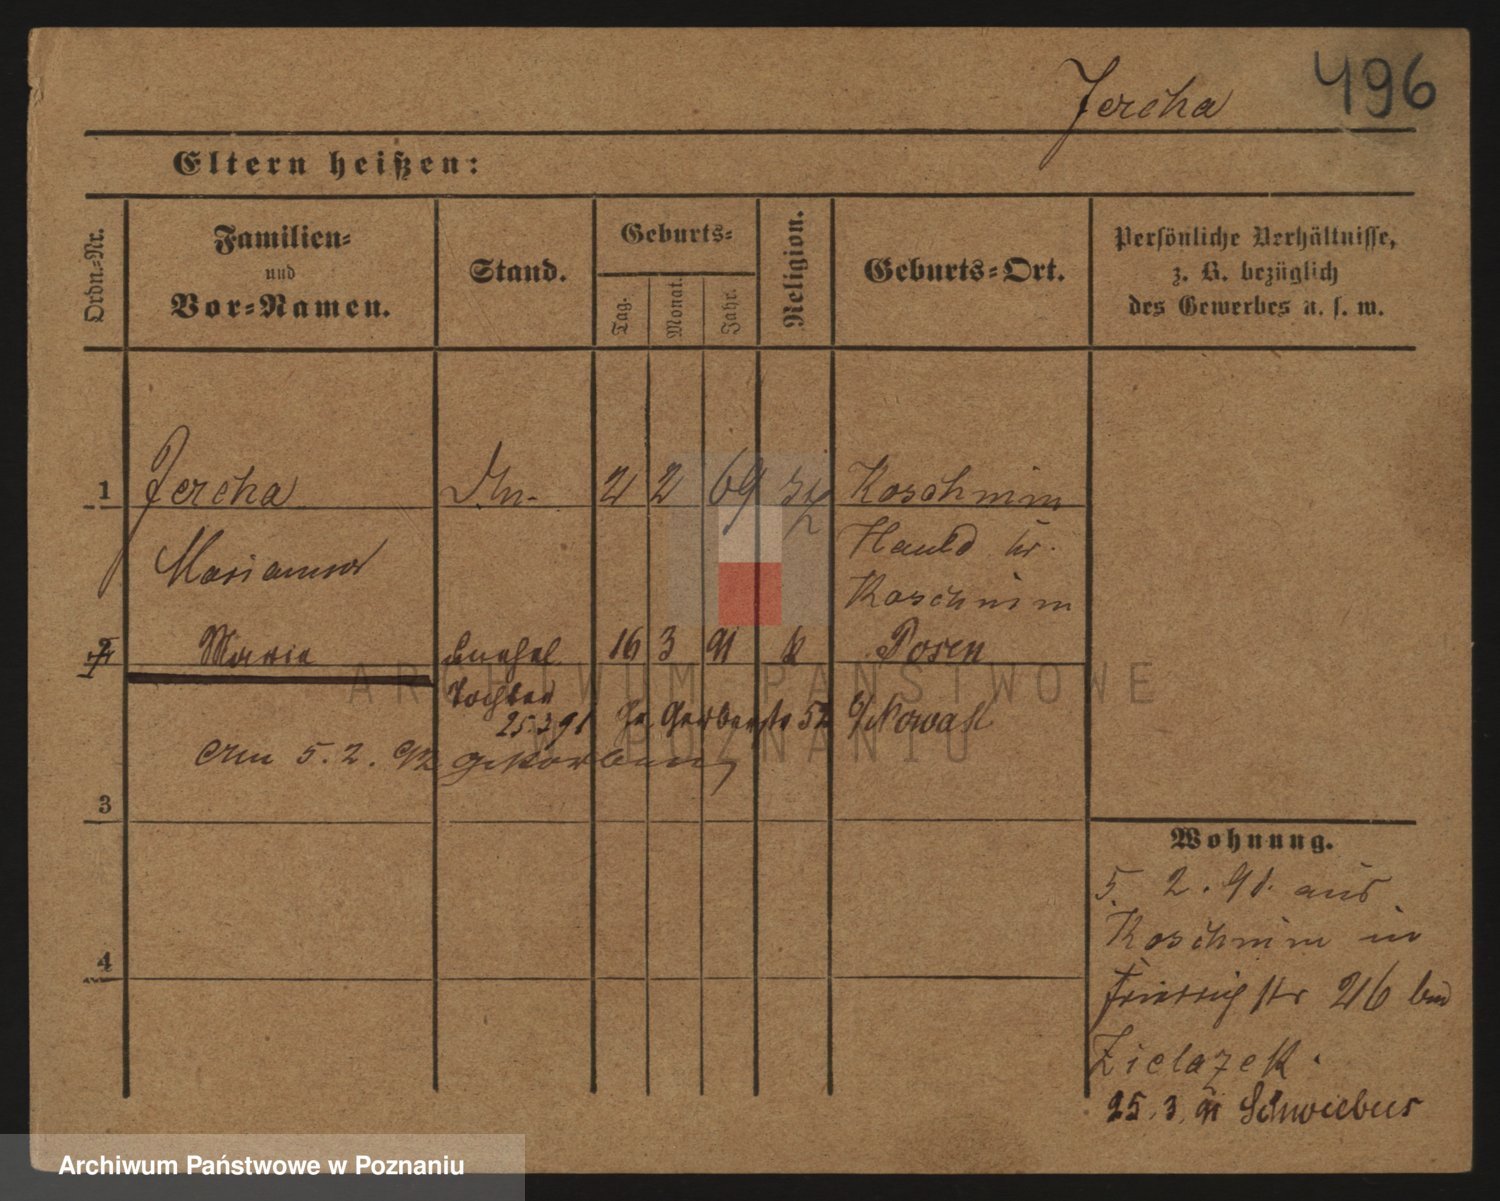 496
Jercha
Eltern heißen:
Ordn.-Nr.
Familien-
und
Vor-Namen.
Stand.
Geburts-
Tag.
Monat.
Jahr.
Religion.
Geburts-Ort.
Persönliche Verhältnisse,
z. B. bezüglich
des Gewerbes u. s. w.
1 Jercha 2 2 69 Koschmin
Marianna Hauld
Koschmin
2 Marie 16 3 91 k Posen
Tochter
25.3.91 Gr. Gerberstr 52 b/Nowak
am 5.2.92 gestorben
3
4
Wohnung.
5. 2. 91. aus
Koschmin in
Friedrichstr 26 bei
Zielazek.
25.3.91 Schwiebus
ARCHIWUM PAŃSTWOWE
W POZNANIU
Archiwum Państwowe w Poznaniu